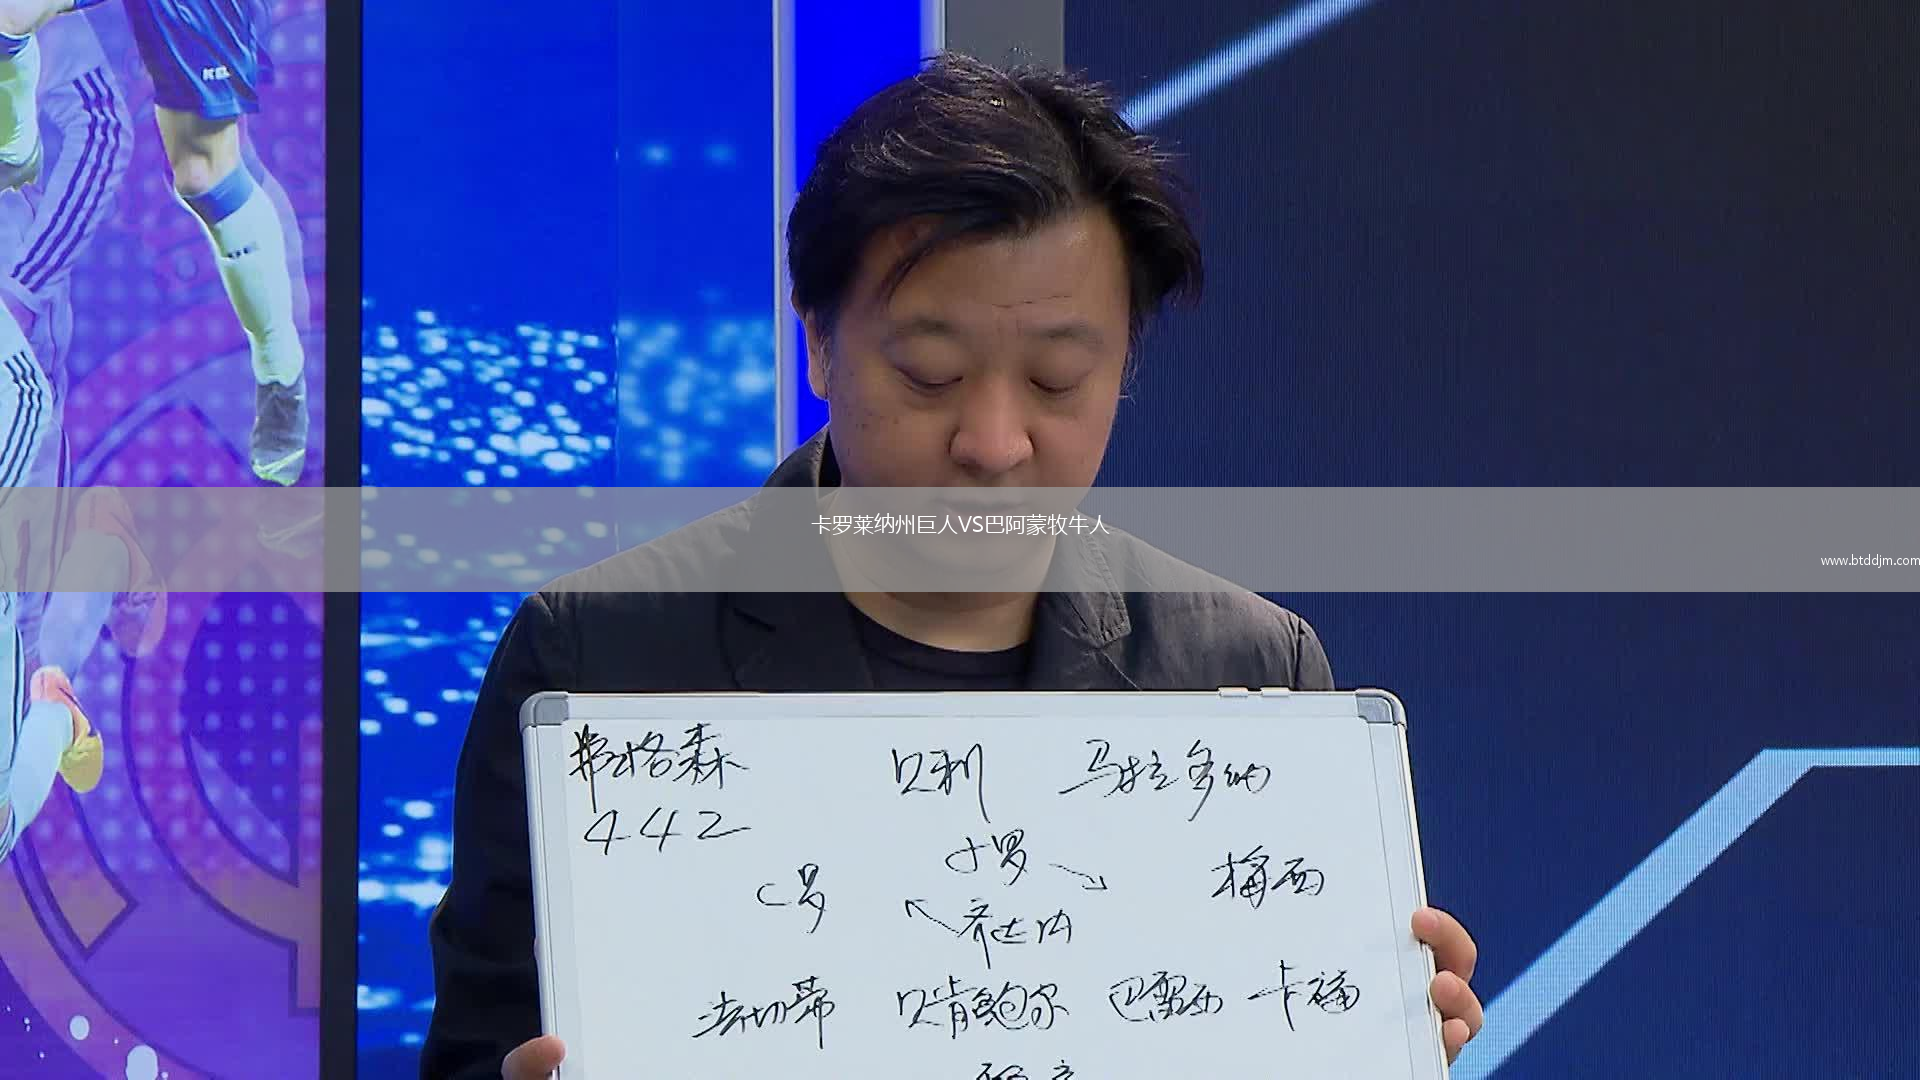 卡罗莱纳州巨人VS巴阿蒙牧牛人
www.btddjm.com
弗格森 贝利 马拉多纳
442
小罗
C罗 梅西
齐达内
法切蒂 贝肯鲍尔 巴雷西 卡福